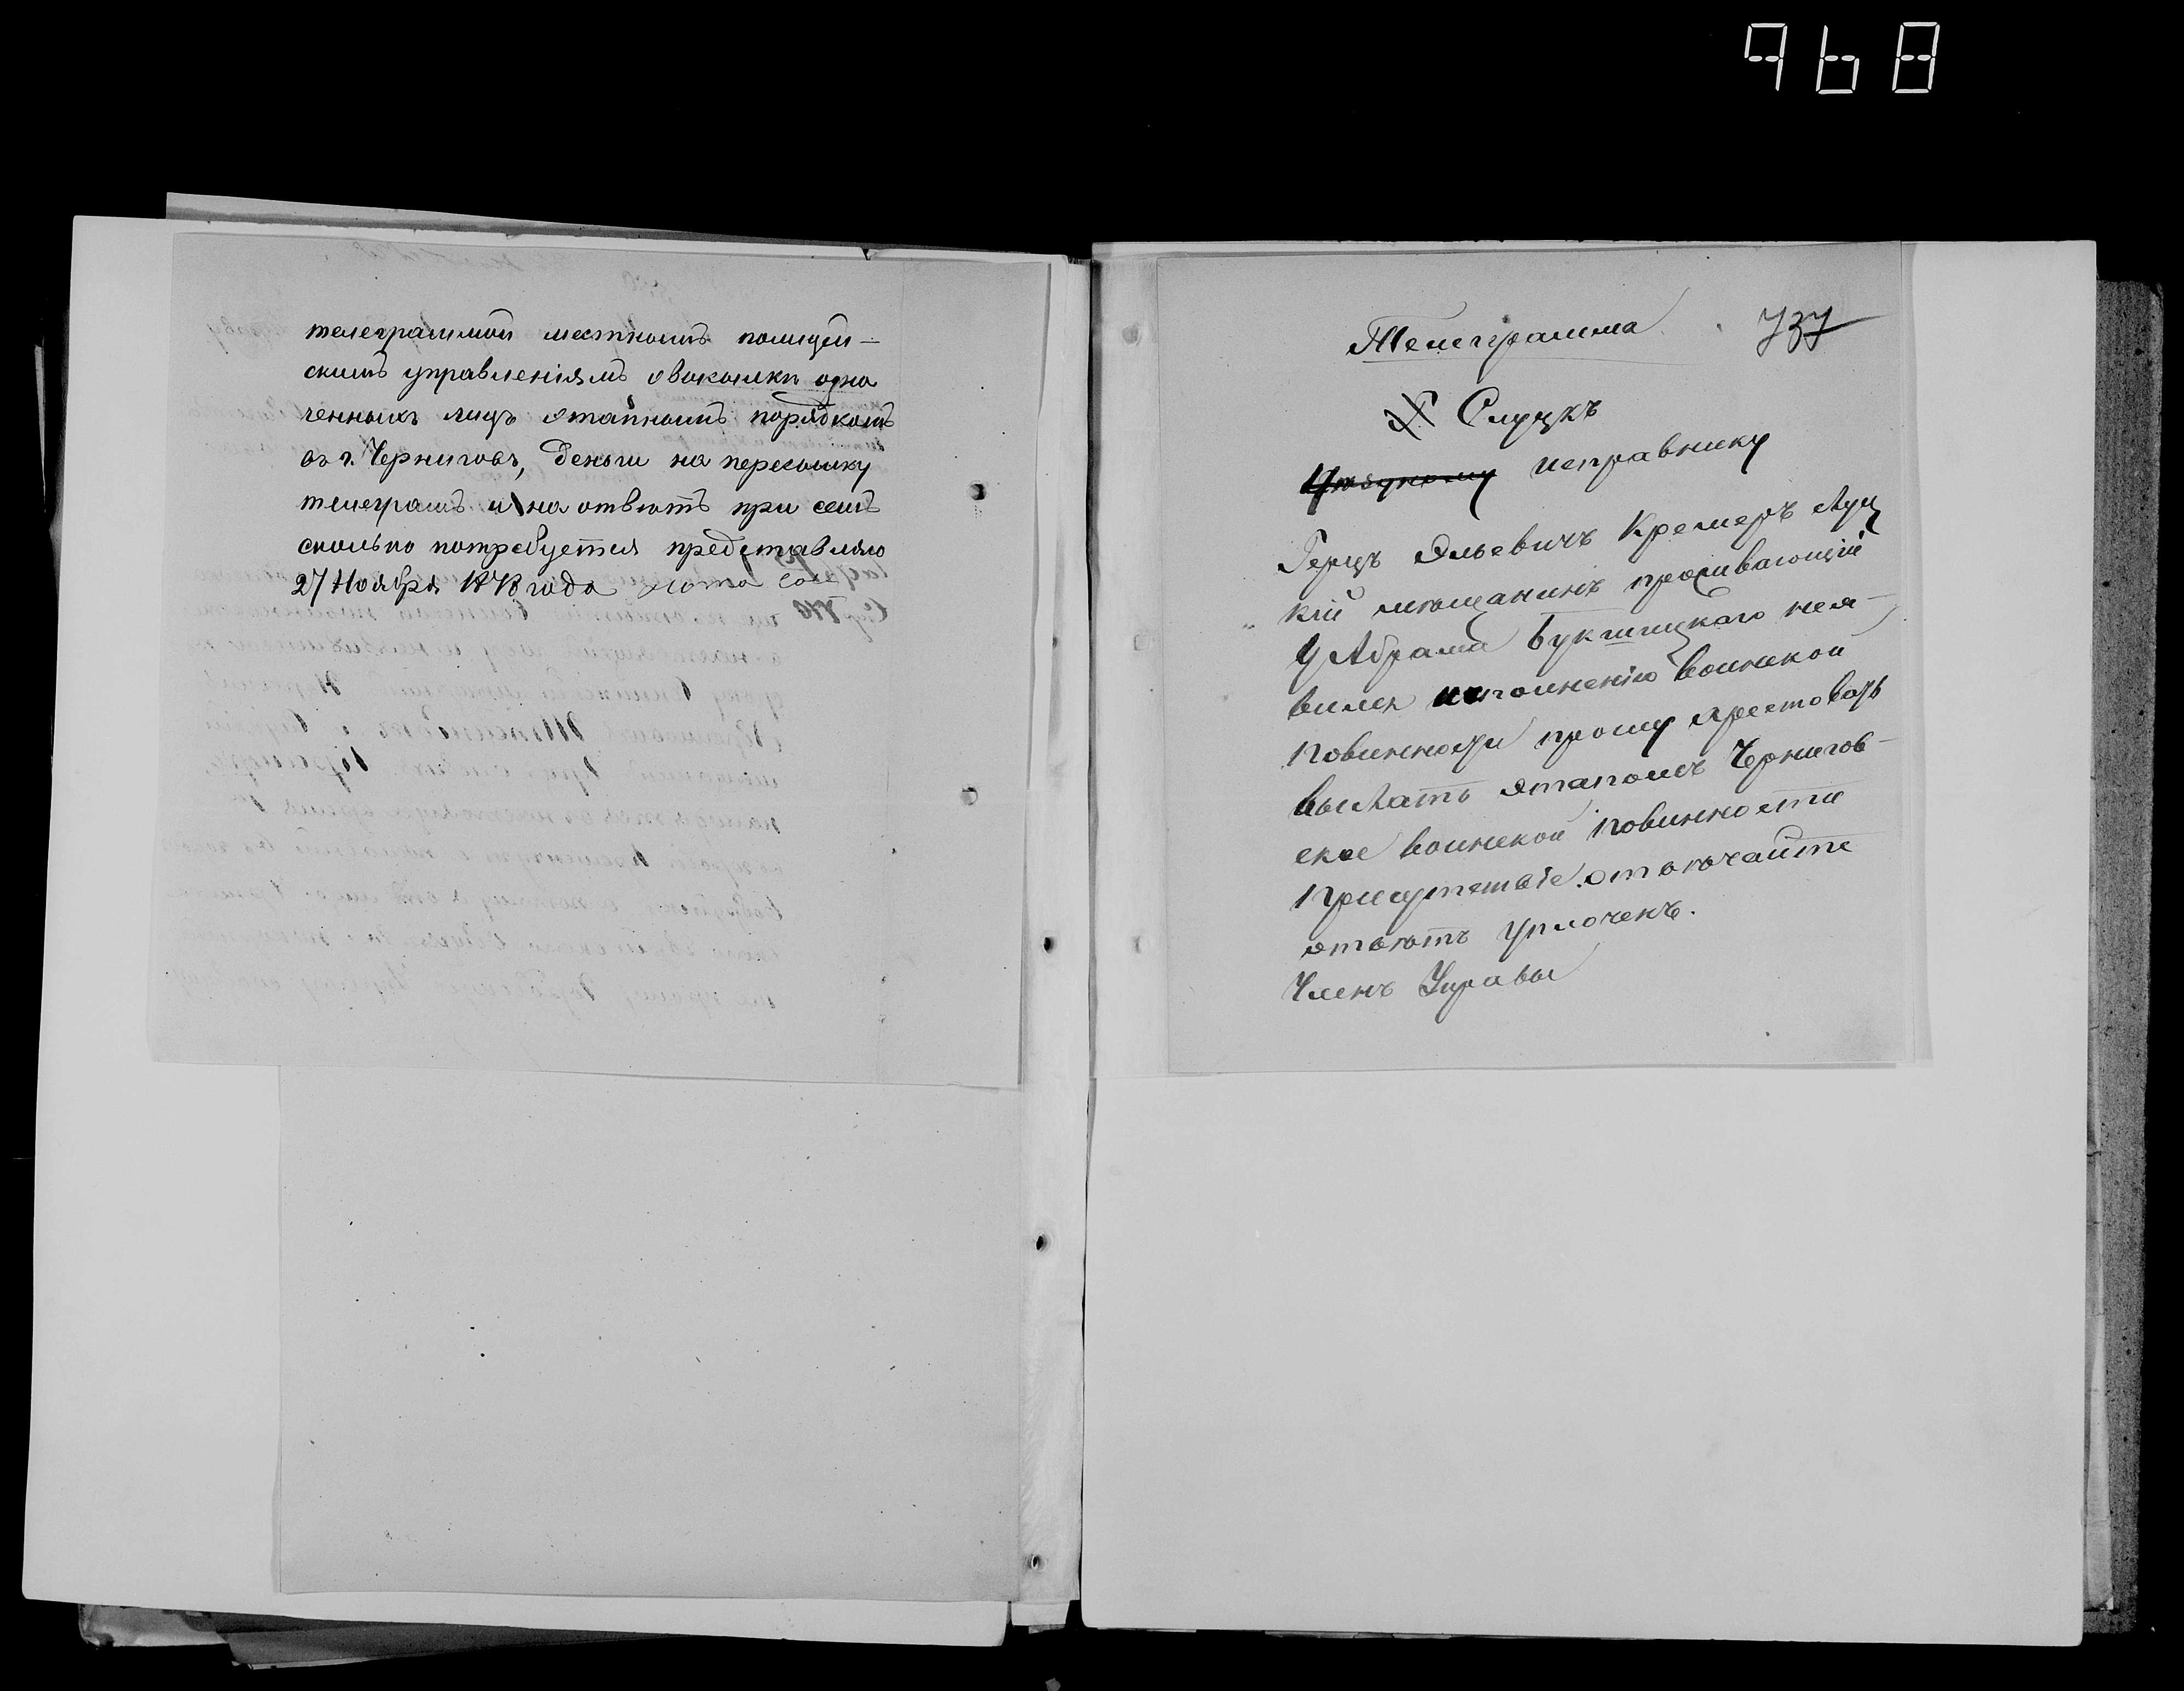 968
телеграммой местнымъ полицей-
скимъ управленіямъ о высылки озна
ченныхъ лицъ этапнымъ порядкомъ
въ г. Черниговъ, деньги на пересылку
телеграмъ и на отвѣтъ при семъ
сколько потребуется представляю
27 Ноября 1878 года
Телеграмма 737
Слуцкъ
исправнику
Герцъ Эльевичъ Кремеръ Луц
кій мѣщанинъ проживающій
у Абрама Букштицкаго нея-
вился исполненію воинской
повинности прошу арестовать
выслать этапомъ Чернигов-
ское воинской повинности
присутствіе отвѣчайте
отвѣтъ уплоченъ.
Членъ Управы